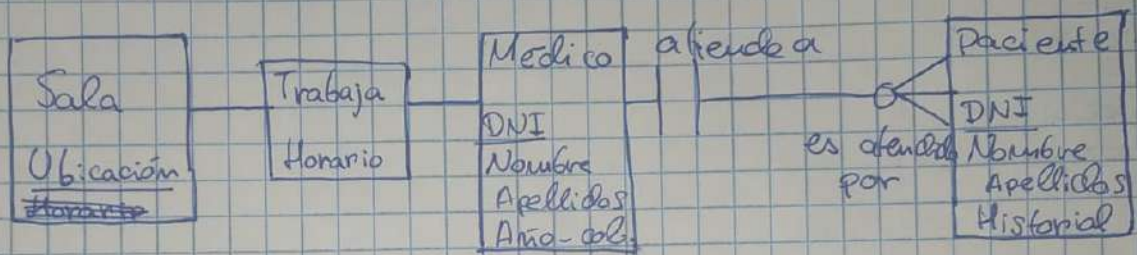 Sala
Ubicación
Horario
Trabaja
Horario
Médico
DNI
Nombre
Apellidos
Año-col.
atiende a
es atendido
por
Paciente
DNI
Nombre
Apellidos
Historial